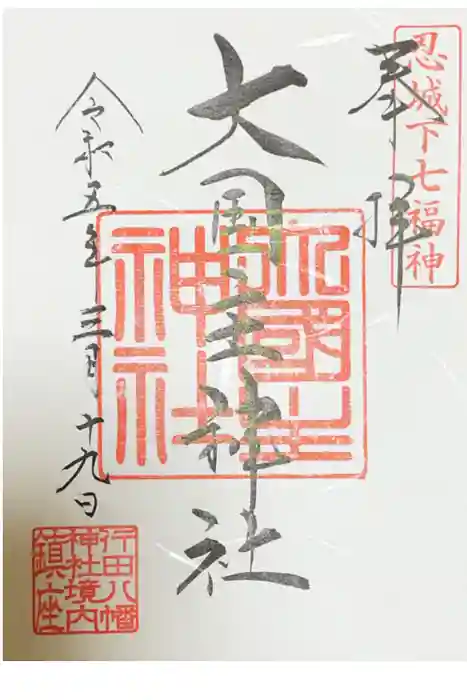 忍城下七福神
奉拝
大国主神社
大國主
神社
令和五年 三月 十九日
行田八幡
神社境内
鎮座